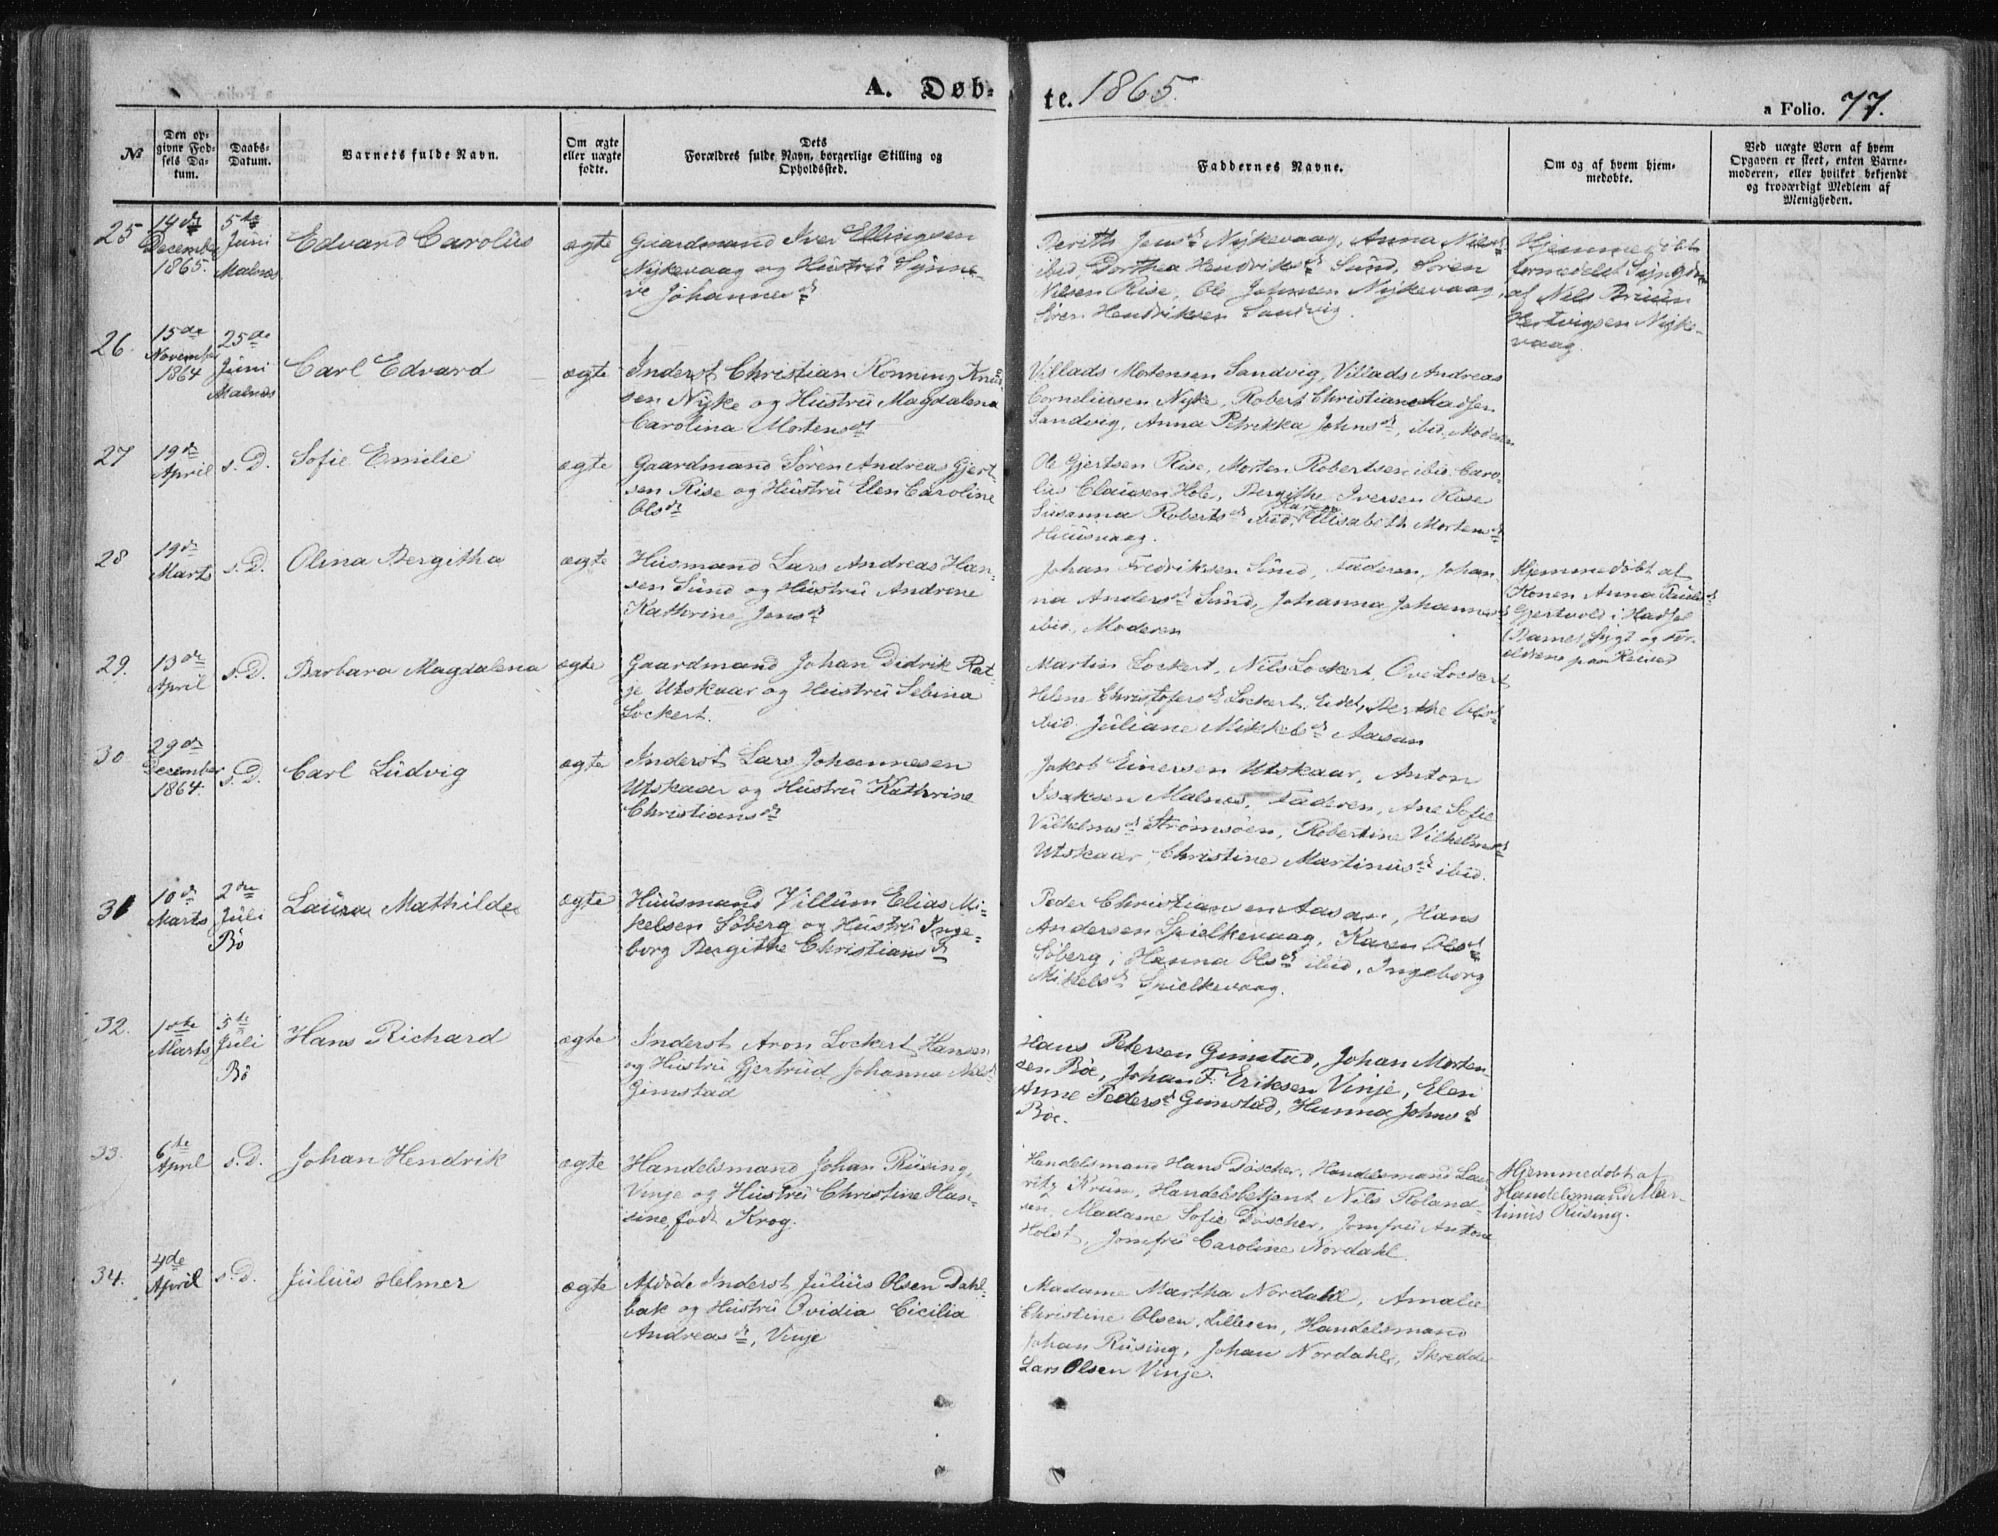 A. Døb-
te. 1865.
a Folio. 77.
No
Den op-
givne Fød-
sels Da-
tum.
Daabs-
Datum.
Barnets fulde Navn.
Om ægte
eller uægte
fødte.
Dets
Forældres fulde Navn, borgerlige Stilling og
Opholdssted.
Faddernes Navne.
Om og af hvem hjem-
medøbte.
Ved uægte Børn af hvem
Opgaven er skeet, enten Barne-
moderen, eller hvilket bekjendt
og troværdigt Medlem af
Menigheden.
25
14de
December
1865.
5te
Juni
Malnes
Edvard Carolüs
ægte
Gaardmand Iver Ellingsen
Nykevaag og Hüstrü Synne-
ve Johannesdr
Berith Jensdr Nykevaag, Anna Nilsdr
ibid, Dorthea Hendriksdr Sünd, Søren
Nilsen Rise, Ole Johnsen Nykevaag,
Søren Hendriksen Sandvig.
Hjemmedøbt
formedelst Sygdom
af Nils Brüün
Hertvigsen Nyke-
vaag.
26.
15de
November
1864
25de
Jüni
Malnes
Carl Edvard
ægte
Inderst Christian Rönning Knüd-
sen Nyke og Hüstrü Magdalena
Carolina Mortensdr
Villads Mortensen Sandvig, Villads Andreas
Corneliüsen Nyke, Robert Christian Madsen
Sandvig, Anna Petrikka Johnsdr, ibid, Moderen
27
19de
April
s. D.
Sofie Emilie
ægte
Gaardmand Sören Andreas Gjert-
sen Rise og Hüstrü Elen Caroline
Olsdr
Ole Gjertsen Rise, Morten Robertsen ibid. Caro-
lius Claüsen Hole, Bergithe Iversen Rise
Susanna Robertsdr ibid, Karen Elisabeth Mortensdr
28
19de
Marts
s. D.
Olina Bergitha
ægte
Hüsmand Lars Andreas Han-
sen Sünd og Hüstrü Andrine
Kathrine Jensdr
Johan Fredriksen Sünd, Faderen, Johan
na Andersdr Sünd, Johanna Johannesdr
ibid, Moderen
Hjemmedøbt af
Konen Anna
Gjertvold i Hadsel
(Barnet sygt og For-
ældrene paa Reise)
29.
13de
April
s. D.
Barbara Magdalena
ægte
Gaardmand Johan Didrik Rat-
je Utskaar og Hüstrü Sebina
Lockert.
Martin Lockert, Nils Lockert, Ove Lockert
Helene Christofersdr Lockert, Eidet, Berthe Olsdr
ibid. Jüliane Mikkelsdr Aasan
30.
29de
December
1864.
s. D.
Carl Lüdvig
ægte
Inderst Lars Johannesen
Utskaar og Hüstrü Kathrine
Christiansdr
Jakob Einersen Utskaar, Anton
Isaksen Malnes, Faderen, Ane Sofie
Vilhelmsdr Strømsøen, Robertine Vilhelmsdr
Utskaar, Christine Martinusdr ibid.
31
10de
Marts
2den
Jüli
Bö
Laüra Mathilde
ægte
Hüüsmand Villüm Elias Mi-
kelsen Söberg og Hüstrü Inge-
borg Bergitte Christiansdr
Peder Christiansen Aasan, Hans
Andersen Spielkevaag, Karen Olsdr
Söberg, Hanna Olsdr ibid, Ingeborg
Mikelsdr Spielkevaag.
32.
10de
Marts
5te
Jüli
Bö
Hans Richard
ægte
Inderst Aron Lockert Hansen
og Hüstrü Gjertrüd Johanna Nilsdr
Gimstad
Hans Petersen Gimstad, Johan Morten-
sen Böe, Johan F. Eriksen Vinje, Elen
Anne Pedersdr Gimstad, Hanna Johnsdr
Böe.
33.
6te
April
s. D.
Johan Hendrik
ægte
Handelsmand Johan Rüsing,
Vinje og Hüstrü Christine Han-
sine, født Krog.
Handelsmand Hans Döscher, Handelsmand Lau-
ritz Krün, Handelsbetjent Nils Roland-
sen, Madame Sofie Döscher, Jomfrü Antone
Holst, Jomfrü Caroline Nordahl.
Hjemmedøbt af
Handelsmand Mar-
tinus Rüsing.
34.
4de
April
s. D.
Jüliüs Helmer
ægte
Afdöde Inderst Jüliüs Olsen Dahl-
bak og Hüstrü Ovidia Cicilia
Andreasdr, Vinje
Madame Martha Nordahl, Amalie
Christine Olsen, Lillesen, Handelsmand
Johan Rüsing, Johan Nordahl, Skredder
Lars Olsen Vinje.